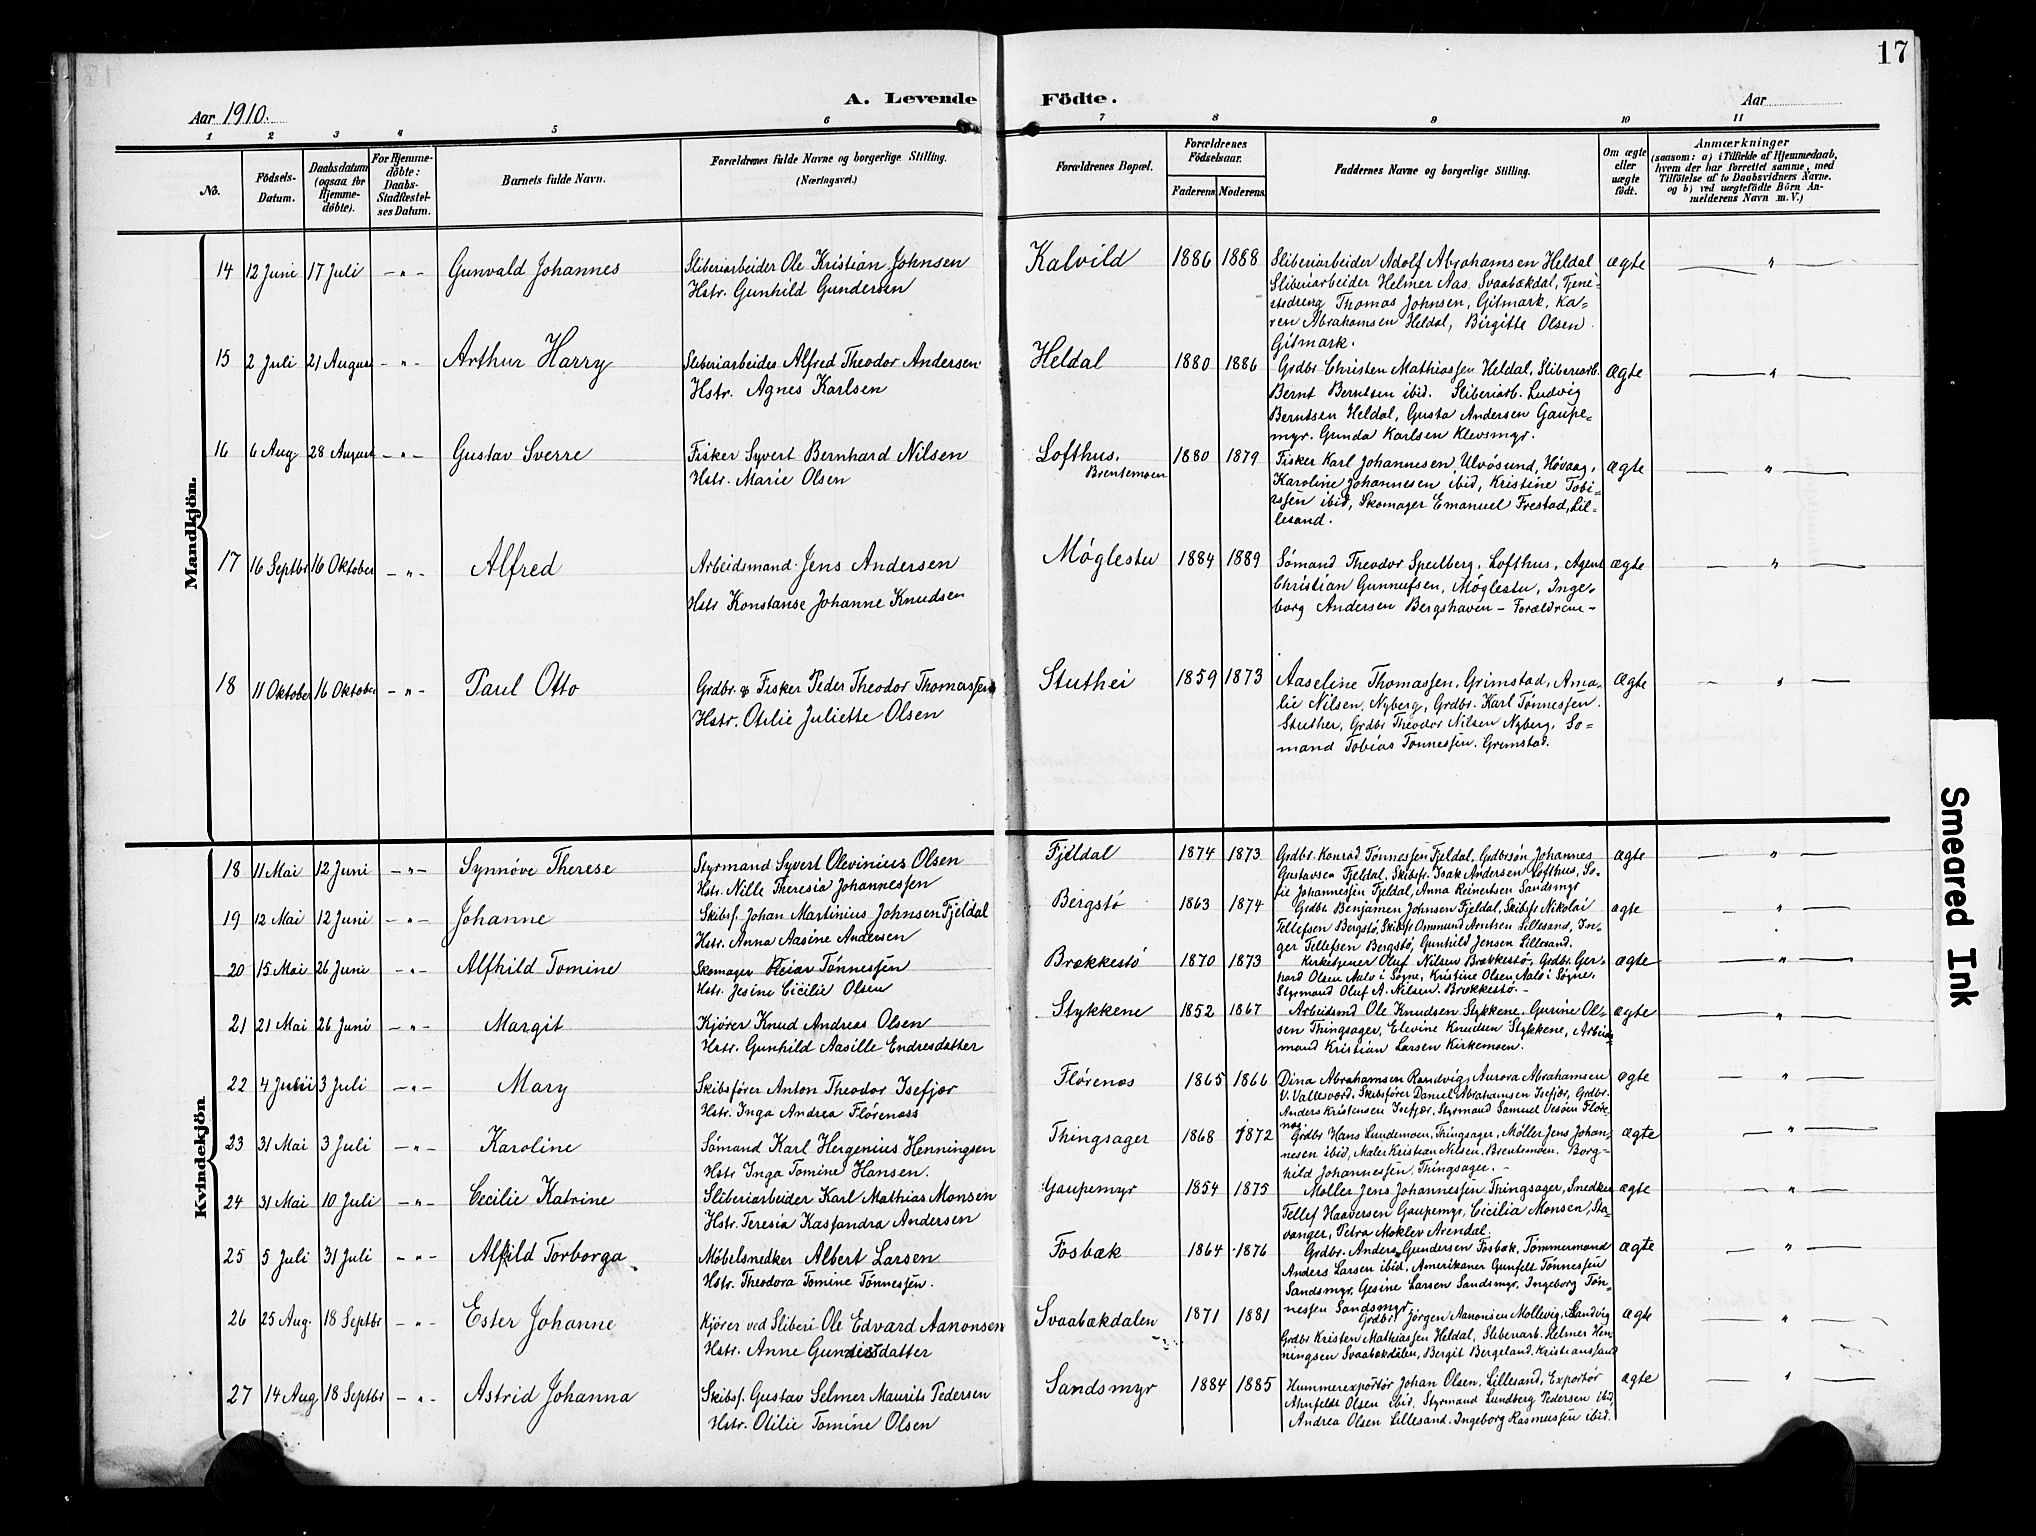 17
A. Levende Födte.
Aar 1910.
Aar
1 2 3 4 5 6 7 8 9 10 11
No.
Födsels-Datum.
Daabsdatum (ogsaa for Hjemme-døbte).
For Hjemme-døbte: Daabs-Stadfæstel-ses Datum.
Barnets fulde Navn.
Forældrenes fulde Navne og borgerlige Stilling. (Næringsvei.)
Forældrenes Bopæl.
Forældrenes Födselsaar.
Faderens. Moderens.
Faddernes Navne og borgerlige Stilling.
Om ægte eller uægte födt.
Anmærkninger
(saasom: a) i Tilfælde af Hjemmedaab, hvem der har forrettet samme, med Tilföielse af to Daabsvidners Navne, og b) ved uægtefödte Börn An-melderens Navn m. V.)
Mandkjön.
14 12 Juni 17 Juli -"- Gunvald Johannes
Sliberiarbeider Ole Kristian Johnsen
Hstr. Gunhild Gundersen
Kalvild 1886 1888
Sliberiarbeider Adolf Abrahamsen Heldal
Sliberiarbeider Helmer Aas. Svaabækdal, Tjene-
stedreng Thomas Johnsen, Gitmark, Ka-
ren Abrahamsen Heldal, Birgitte Olsen
Gitmark.
ægte "
15 2 Juli 21 August -"- Arthur Harry
Sliberiarbeider Alfred Theodor Andersen
Hstr. Agnes Karlsen
Heldal 1880 1886
Grdbr Christen Mathiassen Heldal, Sliberiarb.
Bernt Berntsen ibid. Sliberiarb. Ludvig
Berntsen Heldal, Gusta Andersen Gaupe-
myr. Gunda Karlsen Klevsmyr.
ægte "
16 6 Aug 28 August -"- Gustav Sverre
Fisker Syvert Bernhard Nilsen
Hstr. Marie Olsen
Lofthus. Brentemoen 1880 1879
Fisker Karl Johannesen, Ulvøsund, Høvaag,
Karoline Johannesen ibid, Kristine Tobi-
assen ibid, Skomager Emanuel Frestad, Lil-
lesand.
ægte "
17 16 Septbr 16 Oktober -"- Alfred
Arbeidsmand Jens Andersen
Hstr Konstanse Johanne Knudsen
Møglestu 1884 1889
Sømand Theodor Speilberg, Lofthus, Agent
Christian Gunnufsen, Møglestu, Inge-
borg Andersen Bergshaven - Forældrene -
ægte "
18 11 Oktober 16 Oktober -"- Paul Otto
Grdbr. & Fisker Peder Theodor Thomassen
Hstr. Otilie Juliette Olsen
Stuthei 1859 1873
Aaseline Thomassen, Grimstad, Ama-
lie Nilsen, Nyberg, Grdbr. Karl Tønnessen
Stuther, Grdbr Theodor Nilsen Nyberg, Sø-
mand Tobias Tønnessen. Grimstad.
ægte "
Kvindekjön
18 11 Mai 12 Juni -"- Synnøve Therese
Styrmand Syvert Olevinius Olsen
Hstr. Nille Theresia Johannessen
Fjeldal 1874 1873
Grdbr. Konrad Tønnessen Fjeldal, Grdbrsøn Johannes
Gustavsen Fjeldal, Skibsfr. Isak Andersen Lofthus, So-
fie Johannessen Fjeldal, Anna Reinertsen Sandsmyr
ægte "
19 12 Mai 12 Juni -"- Johanne
Skibsf. Johan Martinius Johnsen Fjeldal
Hstr. Anna Aasine Andersen
Bergstø 1863 1874
Grdbr. Benjamen Johnsen Fjeldal, Skibsfr Nikolai
Tellefsen Bergstø, Skibsfr Osmund Arntsen Lillesand, In-
ger Tellefsen Bergstø, Gunhild Jensen Lillesand.
ægte "
20 15 Mai 26 Juni -"- Alfhild Tomine
Skomager Peiar Tønnessen
Hstr. Jesine Cicilie Olsen
Brækkestø 1870 1873
Kirketjener Oluf Nilsen Brækkestø, Grdbr. Ger-
hard Olsen Aalo i Søgne, Kristine Olsen Aalo i Søgne.
Styrmand Oluf A. Nilsen. Brækkestø. -
ægte "
21 21 Mai 26 Juni -"- Margit
Kjører Knud Andreas Olsen
Hstr. Gunhild Aasille Endresdatter
Stykkene 1852 1867
Arbeidsmd Ole Knudsen Stykkene, Gurine Ol-
sen Thingsager, Elevine Knudsen Stykkene, Arbeids
mand Kristian Larsen Kirkemoen.
ægte "
22 4 Juni 3 Juli -"- Mary
Skibsfører Anton Theodor Isefjær
Hstr. Inga Andrea Flørenæss
Flørenæs 1865 1866
Dina Abrahamsen Randvig, Aurora Abrahamsen
V. Vallesværd. Skibsfører Daniel Abrahamsen Isefjær, Grdbr.
Anders Kristensen Isefjær, Styrmand Samuel Vesøen Fløre-
næs
ægte "
23 31 Mai 3 Juli -"- Karoline
Sømand Karl Hergenius Henningsen
Hstr Inga Tomine Hansen.
Thingsager 1868 1872
Grdbr Hans Lundemoen, Thingsager, Møller Jens Johan-
nesen ibid, Maler Kristian Nilsen, Brentemoen. Borg-
hild Johannessen, Thingsager. -
ægte "
24 31 Mai 10 Juli -"- Cecilie Katrine
Sliberiarbeider Karl Mathias Monsen
Hstr. Teresia Kassandra Andersen
Gaupemyr 1854 1875
Møller Jens Johannessen Thingsager, Smedker
Tellef Haaversen Gaupemyr, Cicilia Monsen, Sta-
vanger, Petra Moklev Arendal.
ægte "
25 5 Juli 31 Juli -"- Alfild Torborga
Møbelsnedker Albert Larsen
Hstr. Theodora Tomine Tønnessen.
Fosbæk 1864 1876
Grdbr. Anders Gundersen Fosbæk, Tømmermand
Anders Larsen ibid, Amerikaner Gunfelt Tønnessen
Sandsmyr, Gesine Larsen Sandsmyr, Ingeborg Tøn-
nessen Sandsmyr
ægte "
26 25 Aug. 18 Septbr -"- Ester Johanne
Kjører ved Sliberi Ole Edvard Aanonsen
Hstr. Anne Gundersdatter
Svaabækdalen 1871 1881
Grdbr. Jørgen Aanonsen Mollevig, Randvig
Grdbr Kristen Mathiassen Heldal, Sliberiarb. Helmer Hen-
ningsen Svaabækdalen, Bergit Bergeland. Kristianssand
ægte "
27 14 Aug 18 Septbr -"- Astrid Johanna
Skibsf. Gustav Selmer Maurits Pedersen
Hstr. Otilie Tomine Olsen
Sandsmyr 1884 1885
Hummerexportør Johan Olsen, Lillesand, Exportør
Ahnfeldt Olsen ibid, Styrmand Lundberg Pedersen ibid,
Andrea Olsen Lillesand. Ingeborg Rasmussen ibid.
ægte "
Smeared Ink